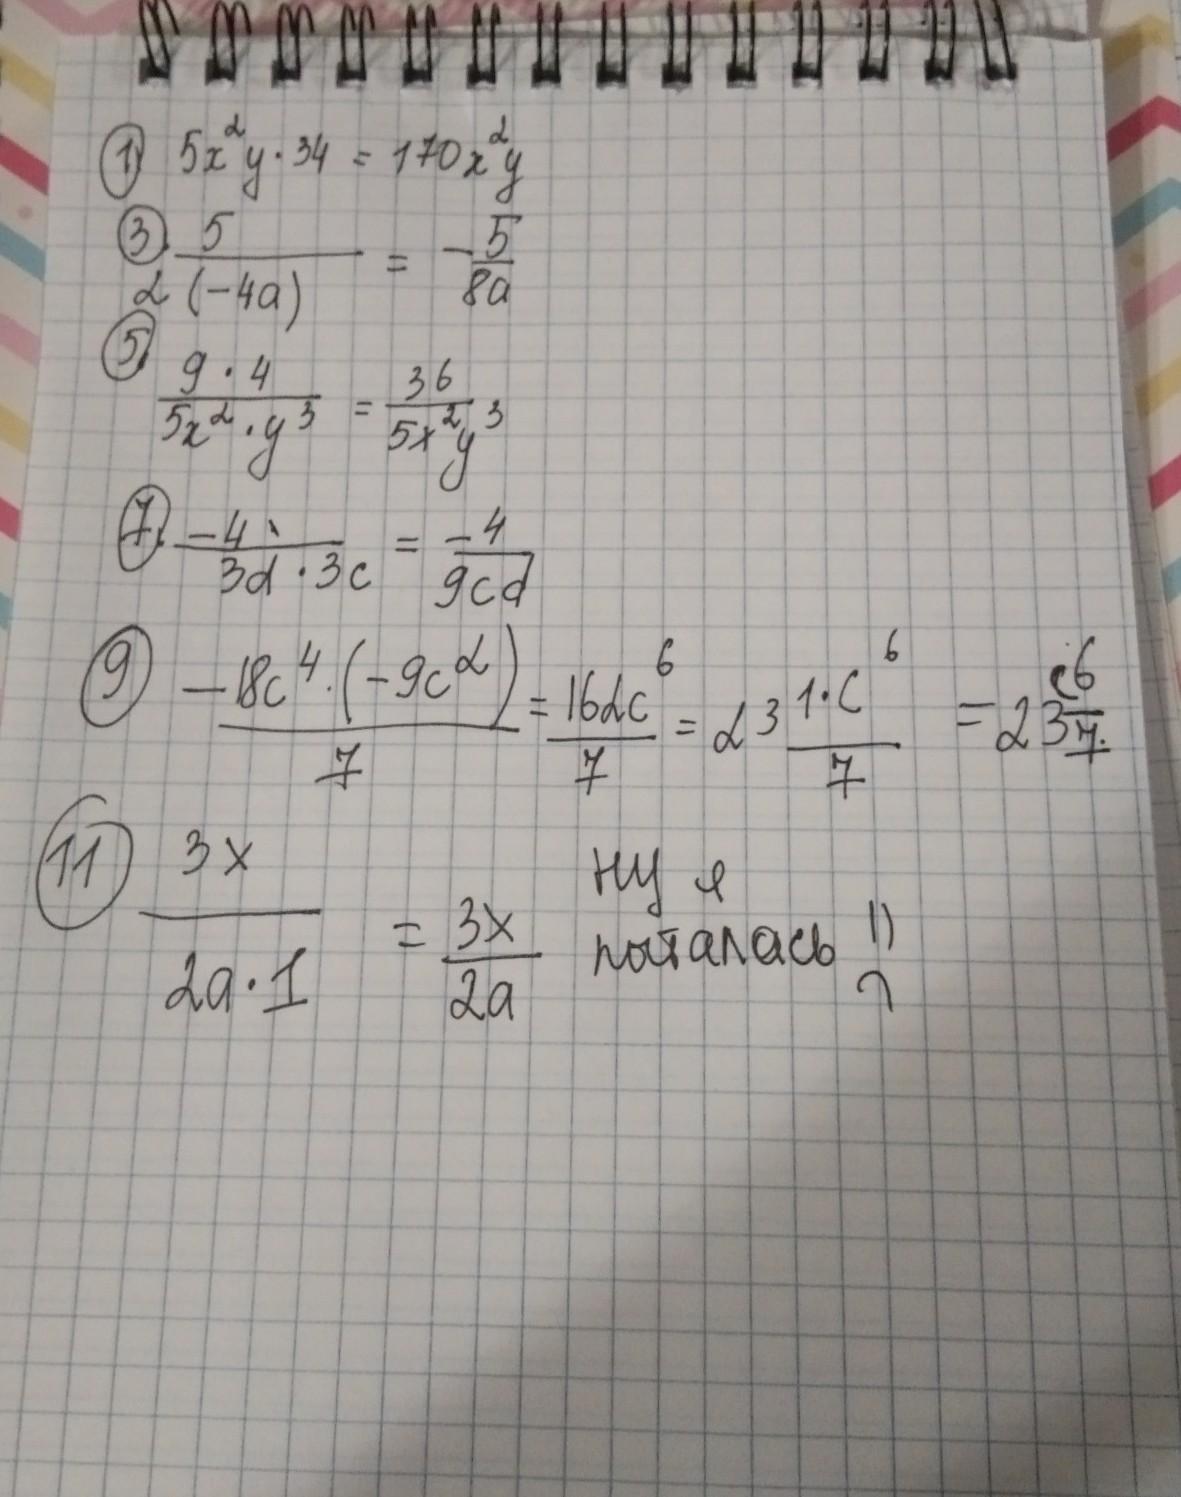 1) 5x²y · 34 = 170x²y
3. 5 / 2(-4a) = - 5 / 8a
5. 9 · 4 / 5x² · y³ = 36 / 5x²y³
7. -4 / 3d · 3c = -4 / 9cd
9) -18c⁴ · (-9c²) / 7 = 162c⁶ / 7 = 23 1·c⁶ / 7 = 23 c6 / 7.
11) 3x / 2a · 1 = 3x / 2a
ну я
пыталась